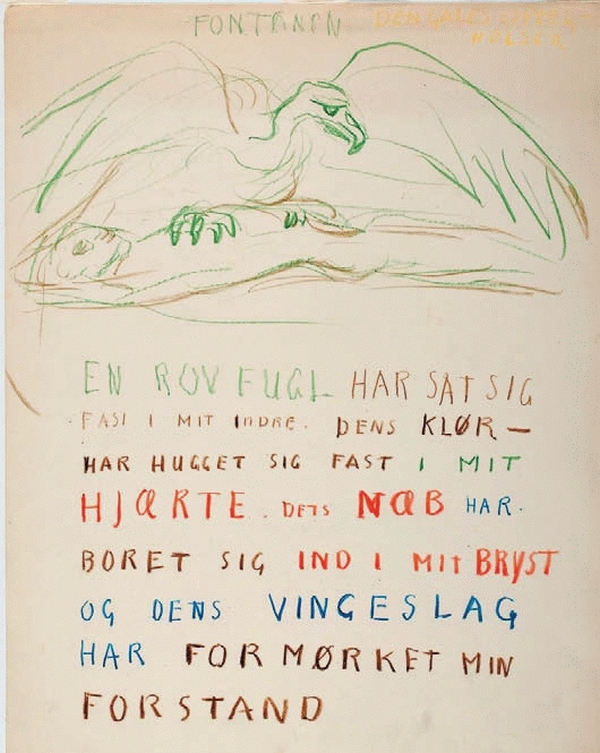 FONTANEN DEN GALES
EN ROVFUGL HAR SAT SIG
FAST I MIT INDRE. DENS KLØR —
HAR HUGGET SIG FAST I MIT
HJÆRTE. DETS NÆB HAR.
BORET SIG IND I MIT BRYST
OG DENS VINGESLAG
HAR FORMØRKET MIN
FORSTAND